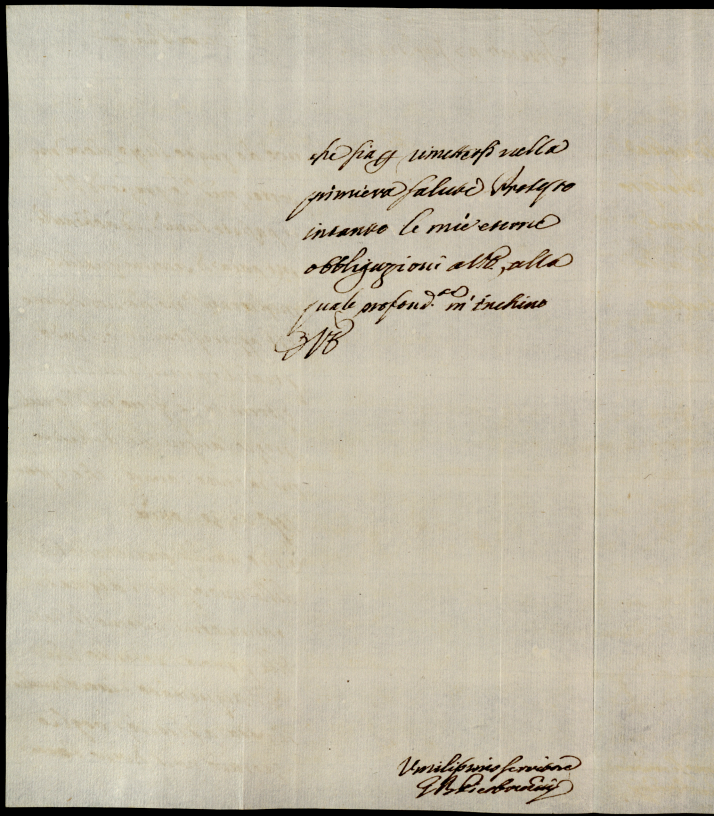 che sia p rimettersi nella
primiera salute Protesto
intanto le mie eterne
obbligazioni a VE, alla
quale profond.te m'inchino
D VE
Umilissimo servitore